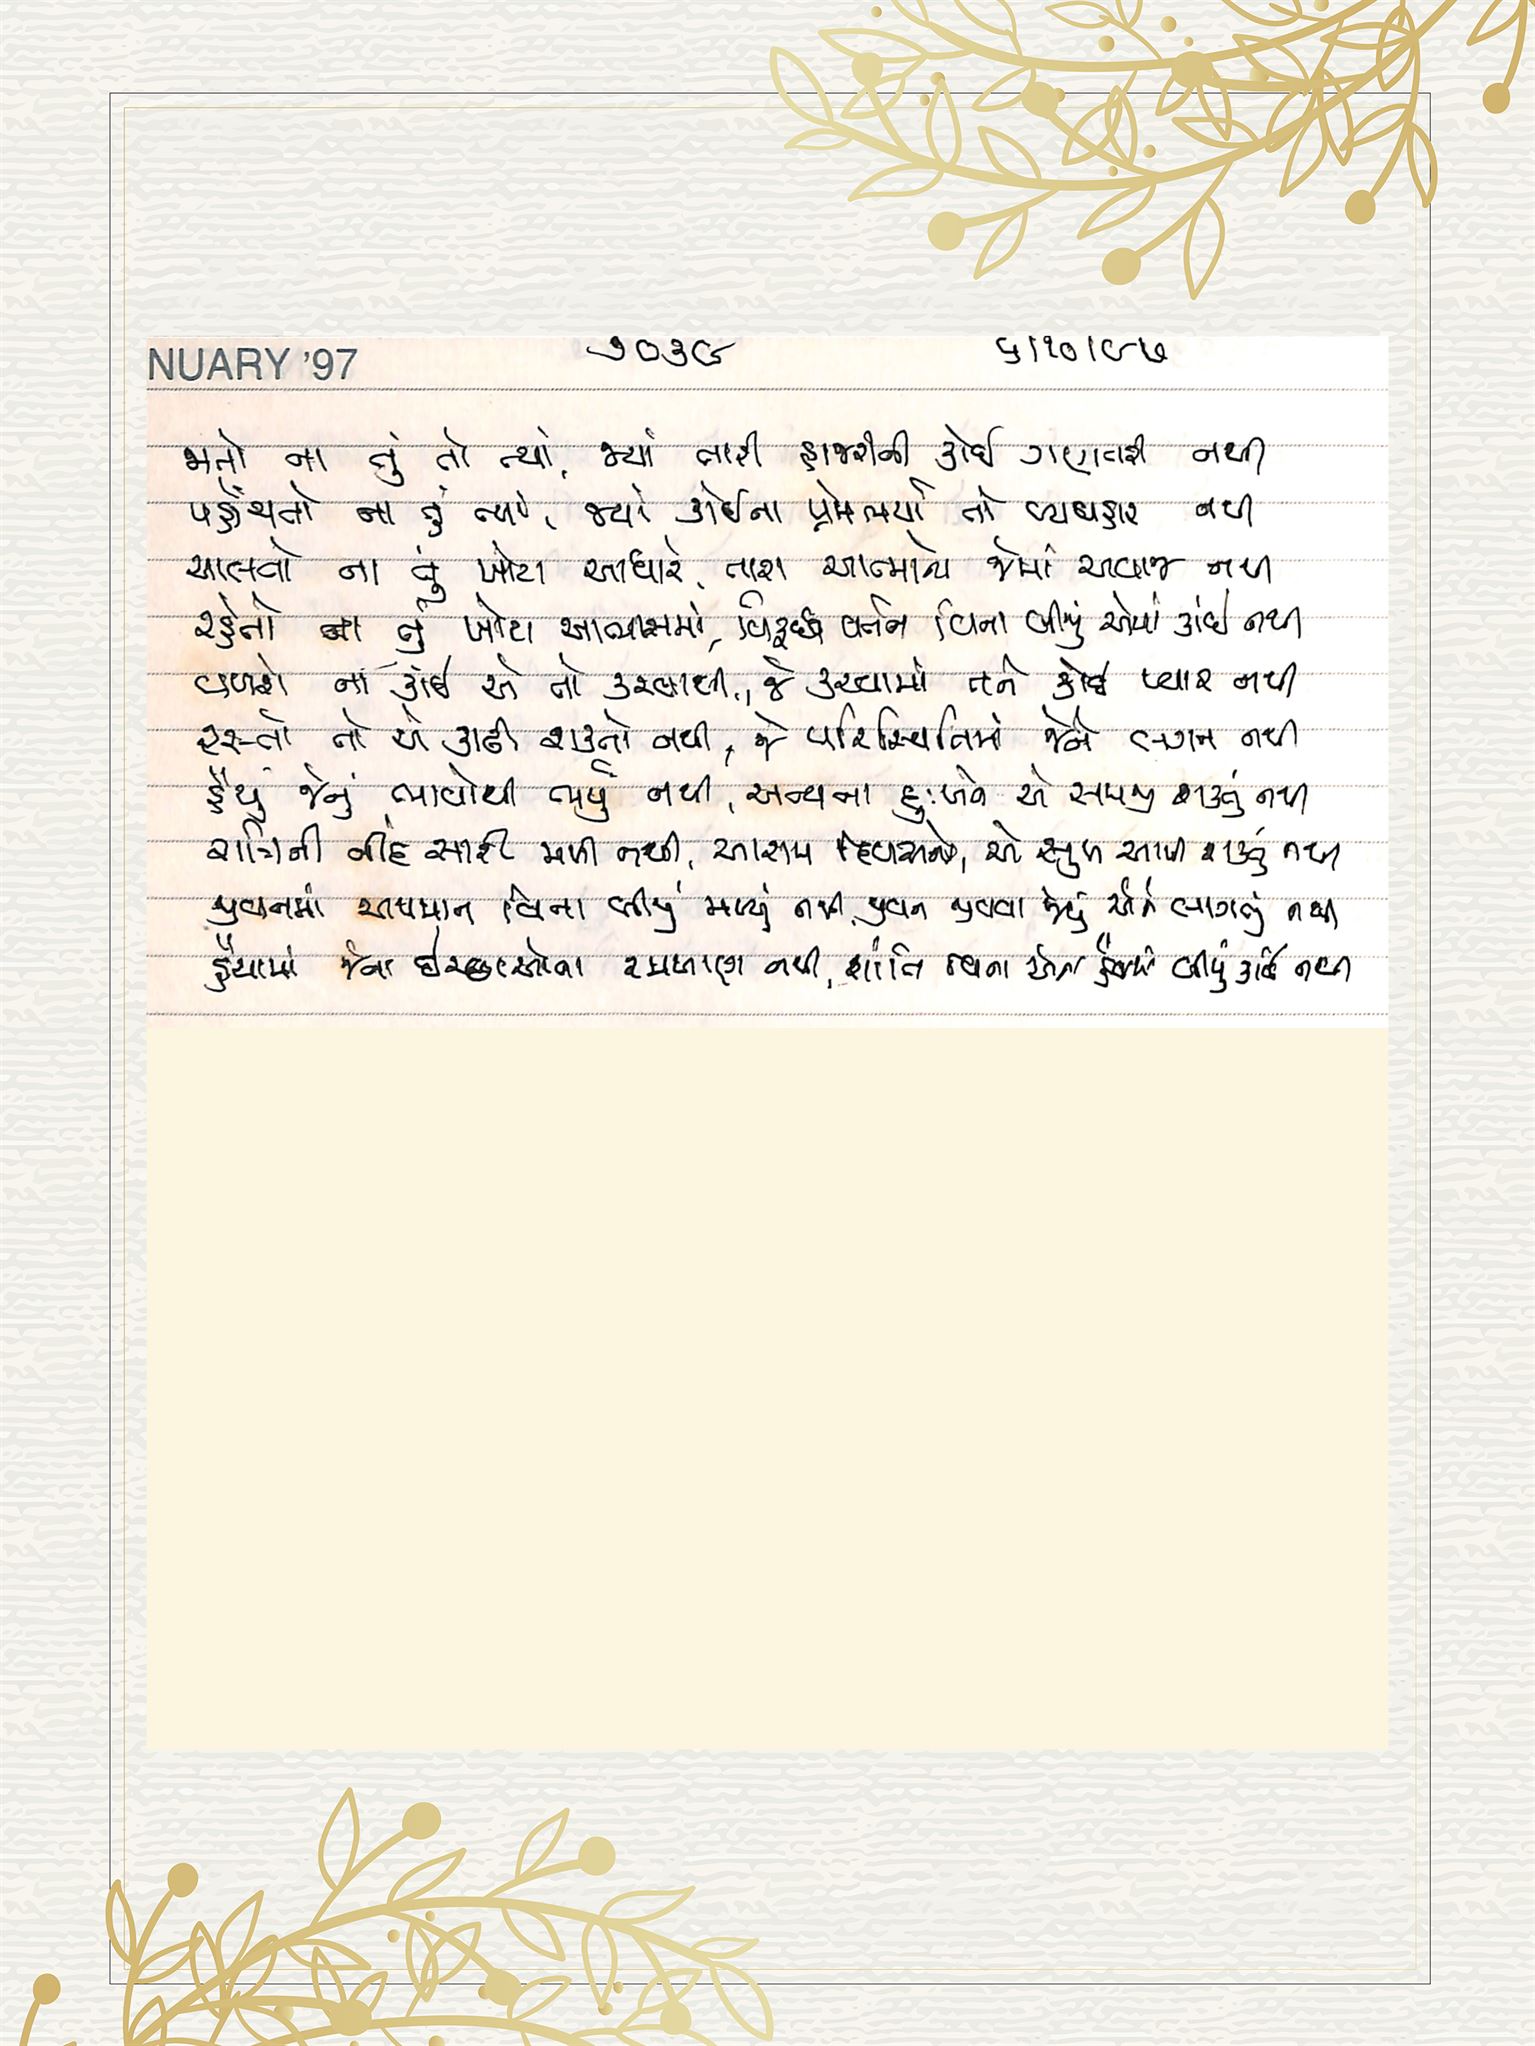 NUARY '97 ૭૦૩૯ ૫।૧૦।૯૭
જાતો ના તું તો ત્યાં, જ્યાં તારી હાજરીની કોઈ ગણતરી નથી
પહોંચતો ના તું ત્યાં, જ્યાં કોઈના પ્રેમભર્યા તો વ્યવહાર નથી
ચાલતો ના તું ખોટા આધારે, તારા આત્માનો જેમાં અવાજ નથી
રહેતો ના તું ખોટા આભાસમાં, વિરૂદ્ધ વર્તન વિના બીજું એમાં કાંઈ નથી
વળશે ના કાંઈ એ તો કરવાથી, જે કરવામાં તને કોઈ પ્યાર નથી
રસ્તો તો એ કાઢી શકતો નથી, જે પરિસ્થિતિમાં જેને જ્ઞાન નથી
હૈયું જેનું ભાવોથી ભર્યું નથી, અન્યના દુઃખને એ સમજી શકતું નથી
રાત્રિની નીંદ સારી મળી નથી, આરામ દિવસનો, એ સુખ આપી શકતું નથી
જીવનમાં અપમાન વિના બીજું મળ્યું નથી, જીવન જીવવા જેવું એને લાગતું નથી
હૈયામાં જેના ઈચ્છાઓના રમખાણ નથી, શાંતિ વિના એના હૈયામાં બીજું કાંઈ નથી